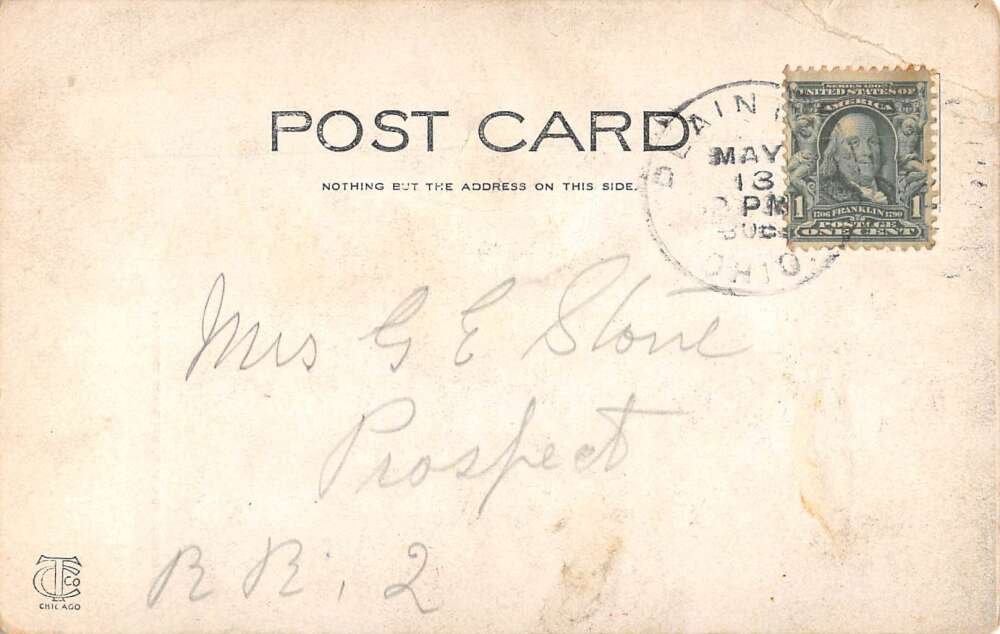 POST CARD
NOTHING BUT THE ADDRESS ON THIS SIDE.
MAY
13
PM
OHIO
SERIES 1902
UNITED STATES OF
AMERICA
1 1706 FRANKLIN 1790 1
POSTAGE
ONE CENT
Mrs G E Stone
Prospect
R R. 2
CT CO
CHICAGO